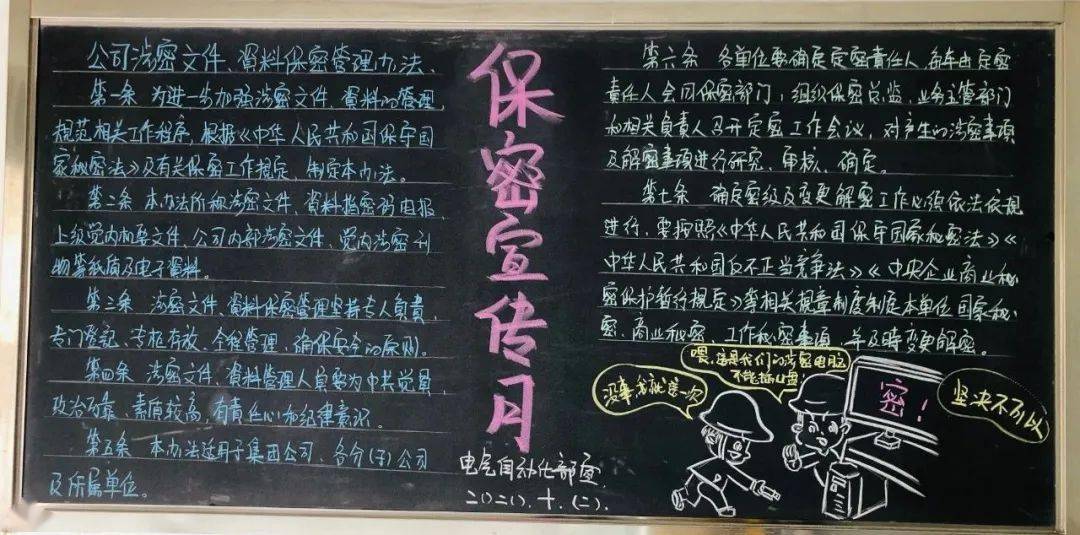 公司涉密文件、資料保密管理办法、
第一条 为进一步加强涉密文件、資料的管理,
规范相关工作程序,根据《中华人民共和国保守国
家秘密法》及有关保密工作规定,制定本办法。
第二条 本办法所称涉密文件、資料指密码电报,
上级党内机要文件、公司内部涉密文件、党内涉密刊
物等纸质及电子資料。
第三条 涉密文件、資料保密管理坚持专人負責,
专门登記、专柜存放、全程管理、确保安全的原则。
第四条 涉密文件、資料管理人员要为中共党員,
政治可靠、素质较高,有責任心和纪律意识。
第五条 本办法适用于集团公司、各分(子)公司
及所属单位。
保密宣传月
电气自动化部宣.
二〇二〇.十.(二).
第六条 各单位要确定定密責任人,每年由定密
責任人会同保密部门,组织保密总监,业务主管部门
和相关負責人召开定密工作会议,对产生的涉密事项
及解密事项进行研究、审核、确定。
第七条 确定密级及变更解密工作必须依法依规
进行,要按照《中华人民共和国保守国家秘密法》《
中华人民共和国反不正当竞争法》《中央企业商业秘
密保护暂行规定》等相关規章制度制定本单位国家秘
密、商业秘密、工作秘密事项,并及時变更解密。
喂,這是我们的涉密电脑
不能插U盘
没事,就這一次
密!
坚决不可以